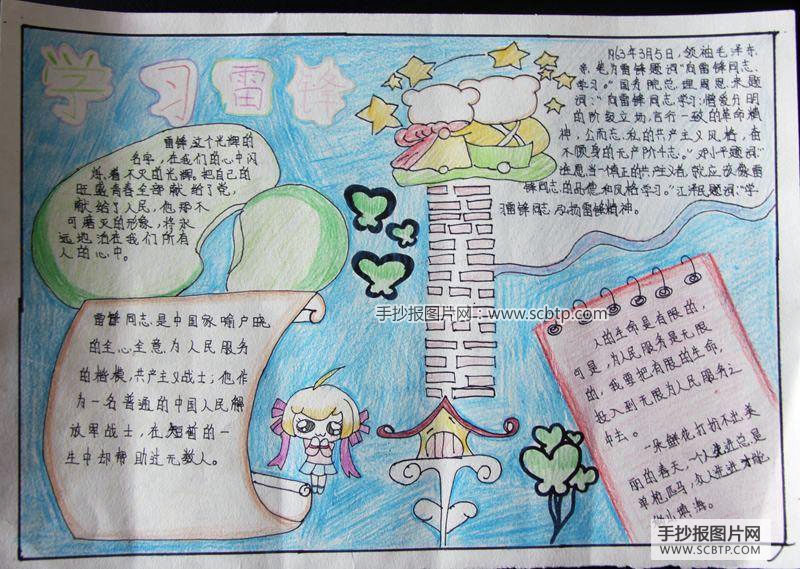 学习雷锋
雷锋这个光辉的
名字，在我们的心中闪
烁着不灭的光辉。把自己的
旺盛青春全部献给了党，
献给了人民，他那不
可磨灭的形象，将永
远地活在我们所有
人的心中。
1963年3月5日，领袖毛泽东
亲笔为雷锋题词"向雷锋同志
学习。"国务院总理周恩来题
词："向雷锋同志学习：憎爱分明
的阶级立场，言行一致的革命精
神，公而忘私的共产主义风格，奋
不顾身的无产阶斗志。"邓小平题词："
谁愿当一个真正的共产主义者，就应该像雷
锋同志的品德和风格学习。"江泽民题词："学
习雷锋同志，弘扬雷锋精神。
雷锋同志是中国家喻户晓
的全心全意为人民服务
的楷模，共产主义战士；他作
为一名普通的中国人民解
放军战士，在短暂的一
生中却帮助过无数人。
人的生命是有限的，
可是，为人民服务是无限
的，我要把有限的生命，
投入到无限为人民服务之
中去。
一朵鲜花打扮不出美
丽的春天，一个人先进总是
单枪匹马，众人先进才能
移山填海。
手抄报图片网：www.scbtp.com
手抄报图片网
WWW.SCBTP.COM